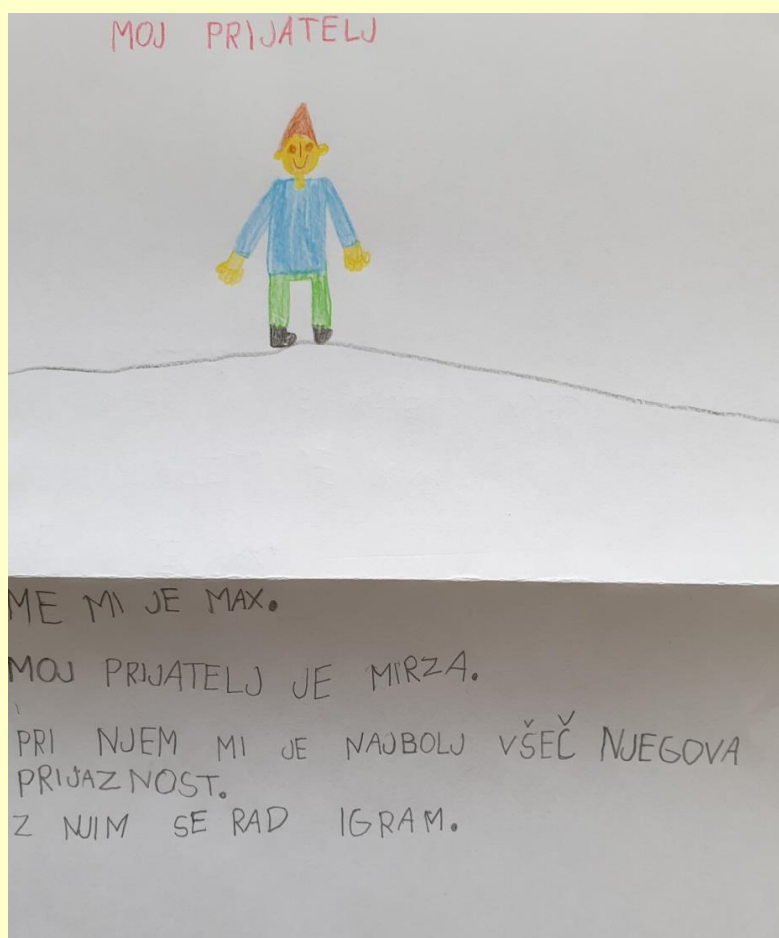 MOJ PRIJATELJ
ME MI JE MAX.
MOJ PRIJATELJ JE MIRZA.
PRI NJEM MI JE NAJBOLJ VŠEČ NJEGOVA
PRIJAZNOST.
Z NJIM SE RAD IGRAM.